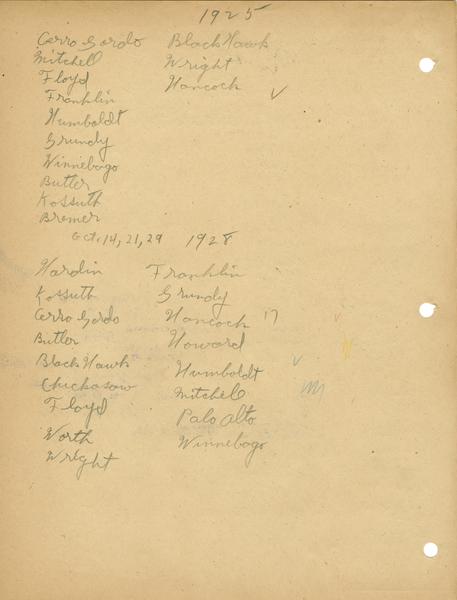 1925
Cerro Gordo Black Hawk
Mitchell Wright
Floyd Hancock
Franklin
Humboldt
Grundy
Winnebago
Butler
Kossuth
Bremer
Oct. 14, 21, 29 1928
Hardin Franklin
Kossuth Grundy
Cerro Gordo Hancock 17
Butler Howard
Black Hawk Humboldt
Chickasaw Mitchell
Floyd Palo Alto
Worth Winnebago
Wright